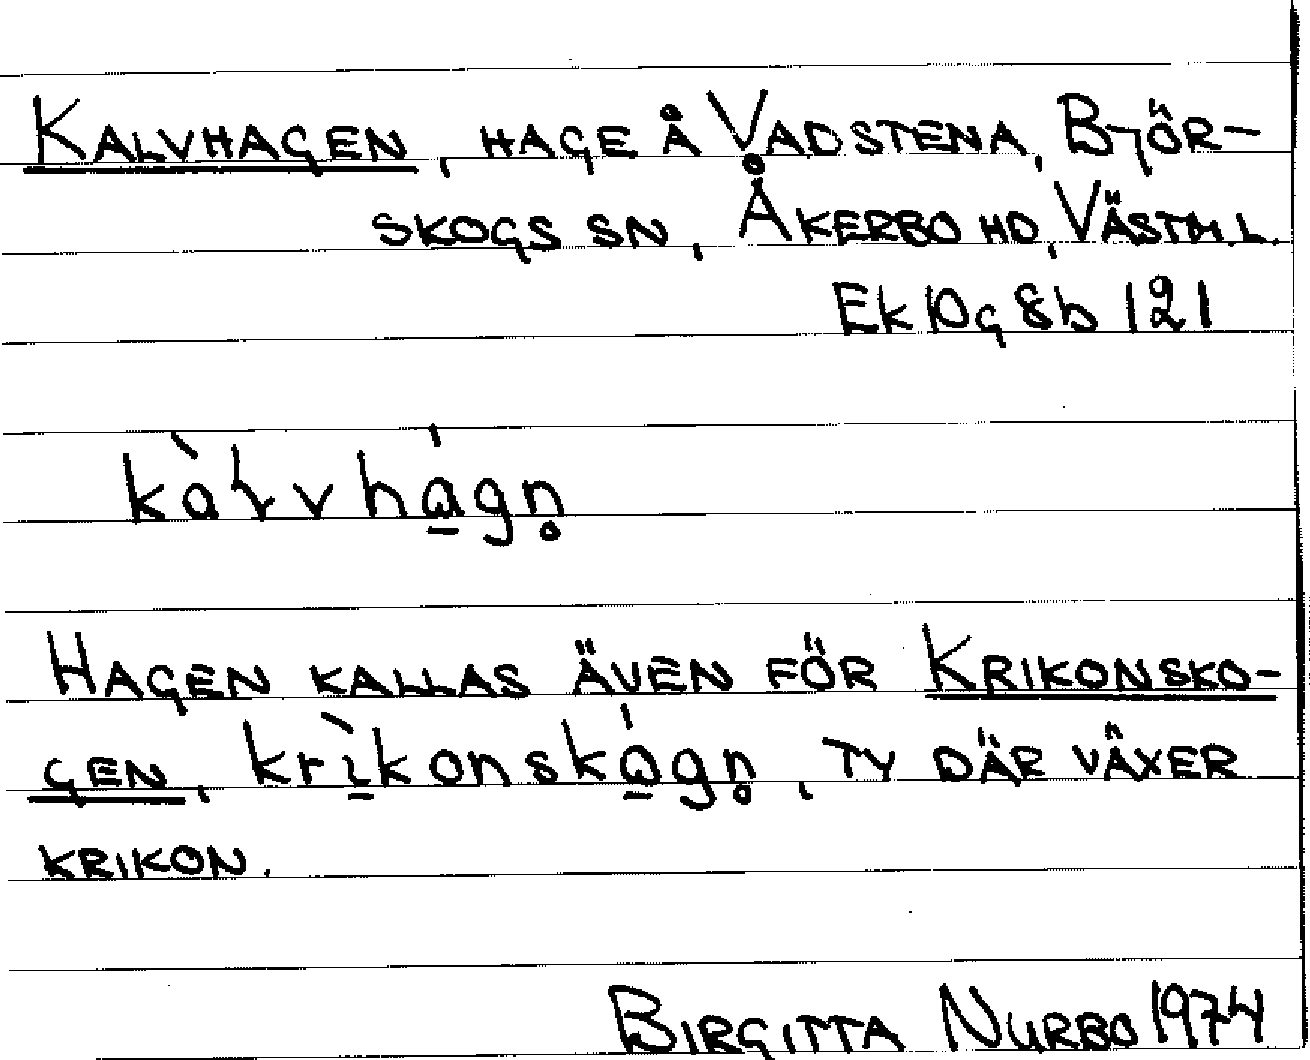 KALVHAGEN, HAGE Å VADSTENA, BJÖR-
SKOGS SN, ÅKERBO HD, VÄSTM.L.
Ek 10g 8b 121
kàɽvhá̱gn̥
HAGEN KALLAS ÄVEN FÖR KRIKONSKO-
GEN, krì̱konskó̱gn̥, TY DÄR VÄXER
KRIKON.
BIRGITTA NURBO 1974